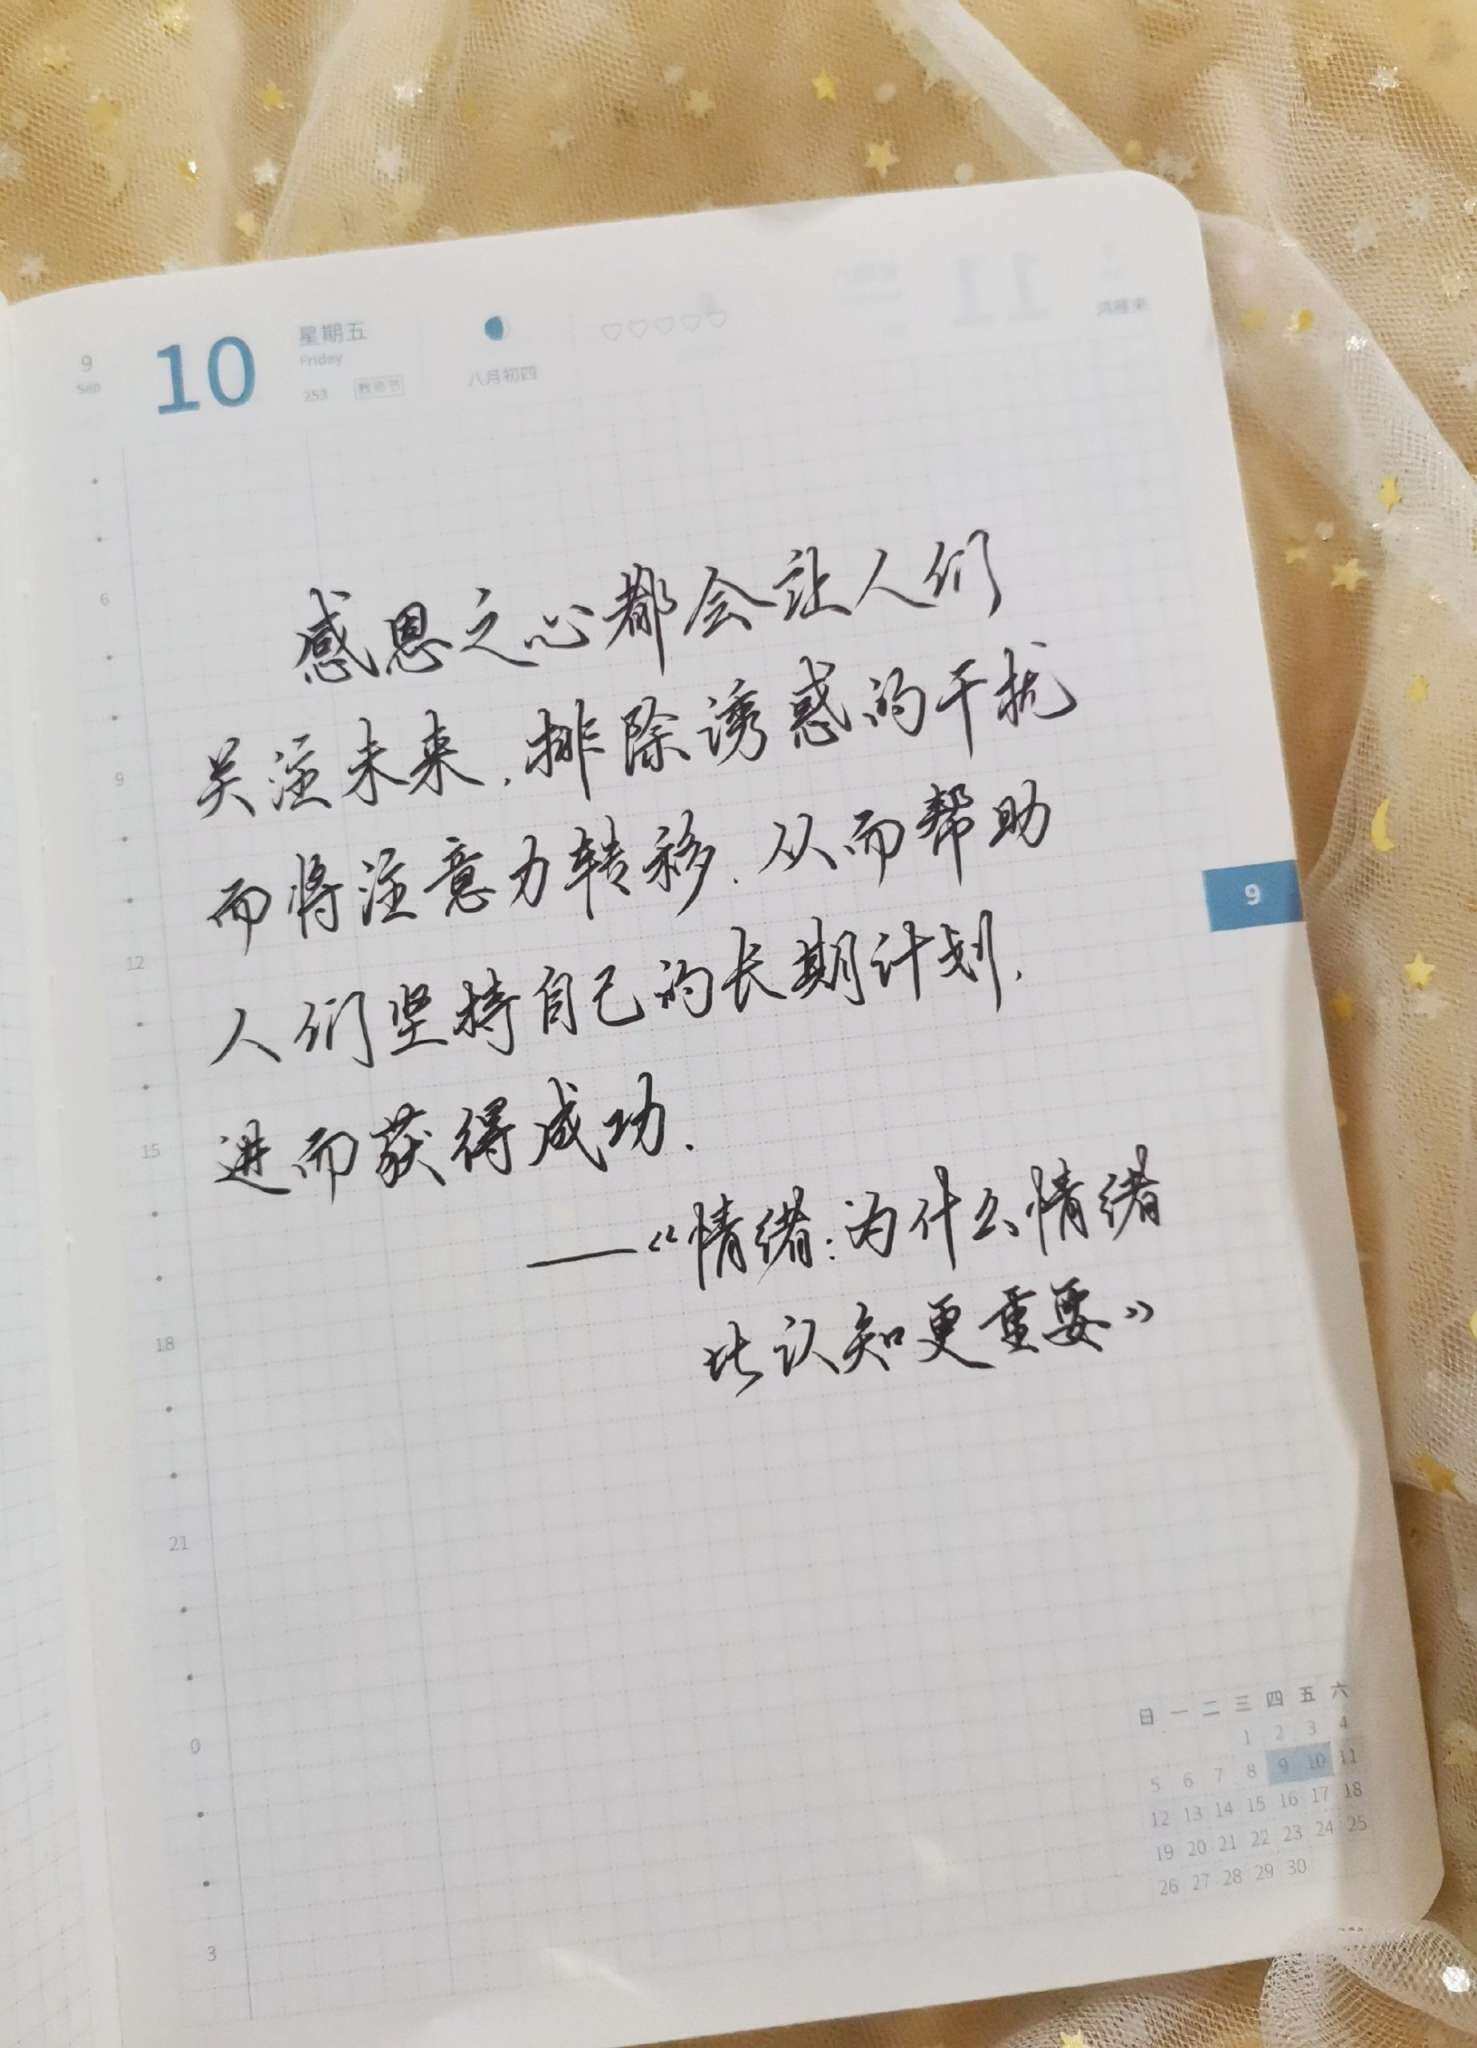 9
Sep
10
星期五
Friday
253 教师节
八月初四
6
9
12
15
18
21
0
3
感恩之心都会让人们
关注未来，排除诱惑的干扰
而将注意力转移，从而帮助
人们坚持自己的长期计划，
进而获得成功.
——《情绪：为什么情绪
比认知更重要》
9
日 一 二 三 四 五 六
1 2 3 4
5 6 7 8 9 10 11
12 13 14 15 16 17 18
19 20 21 22 23 24 25
26 27 28 29 30